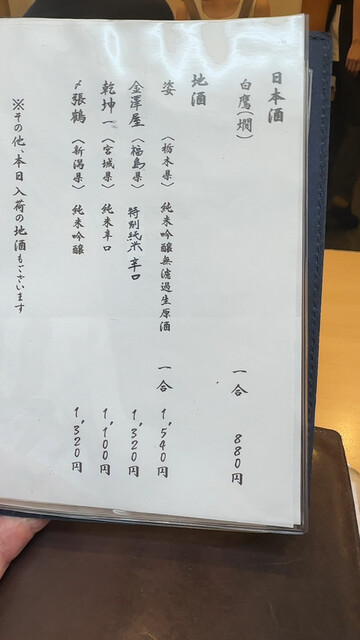 日本酒
白鷹(燗) 一合 880円
地酒
姿 〈栃木県〉 純米吟醸無濾過生原酒 一合 1,540円
金澤屋 〈福島県〉 特別純米 辛口 1,320円
乾坤一 〈宮城県〉 純米辛口 1,100円
〆張鶴 〈新潟県〉 純米吟醸 1,320円
※その他、本日入荷の地酒もございます